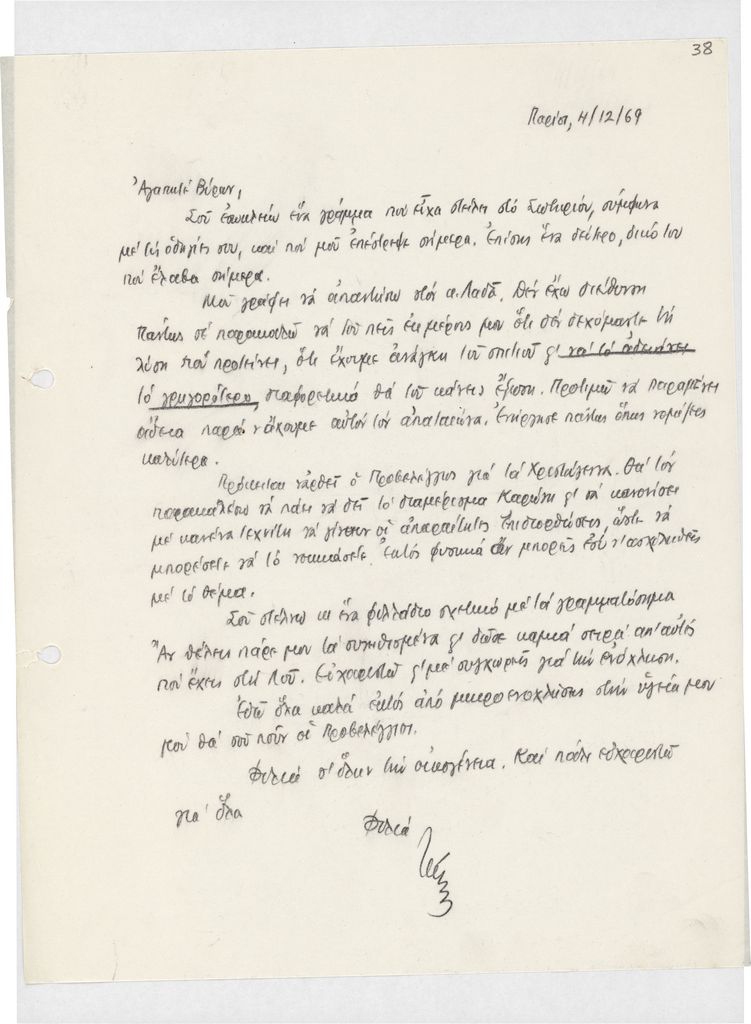 38
Παρίσι, 4/12/69
Ἀγαπητέ Βύρων,
Σοῦ ἐσωκλείω ἕνα γράμμα πού εἶχα στείλει στό Σωτηρίου, σύμφωνα
μέ τίς ὁδηγίες σου, καί πού μοῦ ἐπέστρεψε σήμερα. Ἐπίσης ἕνα δεύτερο, δικό του
πού ἔλαβα σήμερα.
Μοῦ γράφει νά ἀπαντήσω στόν κ. Λαδᾶ. Δέν ἔχω διεύθυνση
Πάντως σέ παρακαλῶ νά τοῦ πεῖς ἐκ μέρους μου ὅτι δέν δεχόμαστε τή
λύση πού προτείνει, ὅτι ἔχουμε ἀνάγκη τοῦ σπιτιοῦ νά τό ἀδειάσει
τό γρηγορότερο, διαφορετικά θά τοῦ κάνεις ἔξωση. Προτιμῶ νά παραμένει
ἄδειο παρά νἄχουμε αὐτόν τόν ἀπατεώνα. Ἐνέργησε πάντως ὅπως νομίζεις
καλύτερα.
Πρόκειται νἄρθει ὁ Προβελέγγιος γιά τά Χριστούγεννα. Θά τόν
παρακαλέσω νά πάει νά δεῖ τό διαμέρισμα Καρώρη νά κανονίσει
μέ κανένα τεχνίτη νά γίνουν οἱ ἀπαραίτητες ἐπιδιορθώσεις, ὥστε νά
μπορέσεις νά τό νοικιάσεις. Ἐκτός φυσικά ἄν μπορεῖς ἐσύ ν' ἀσχοληθεῖς
μέ τό θέμα.
Σοῦ στέλνω κι ἕνα φυλλάδιο σχετικό μέ τά γραμματόσημα
Ἄν θέλεις πάρε μου τά συνηθισμένα δῶσε καμιά σειρά ἀπ' αὐτές
πού ἔχεις στή Λού. Εὐχαριστῶ μέ συγχωρεῖς γιά τήν ἐνόχληση.
Ἐδῶ ὅλα καλά ἐκτός ἀπό μικροενοχλήσεις στήν ὑγεία μου
πού θά σοῦ ποῦν οἱ Προβελέγγιοι.
Φιλιά σ' ὅλην τήν οἰκογένεια. Καί πάλι εὐχαριστῶ
γιά ὅλα
Φιλιά